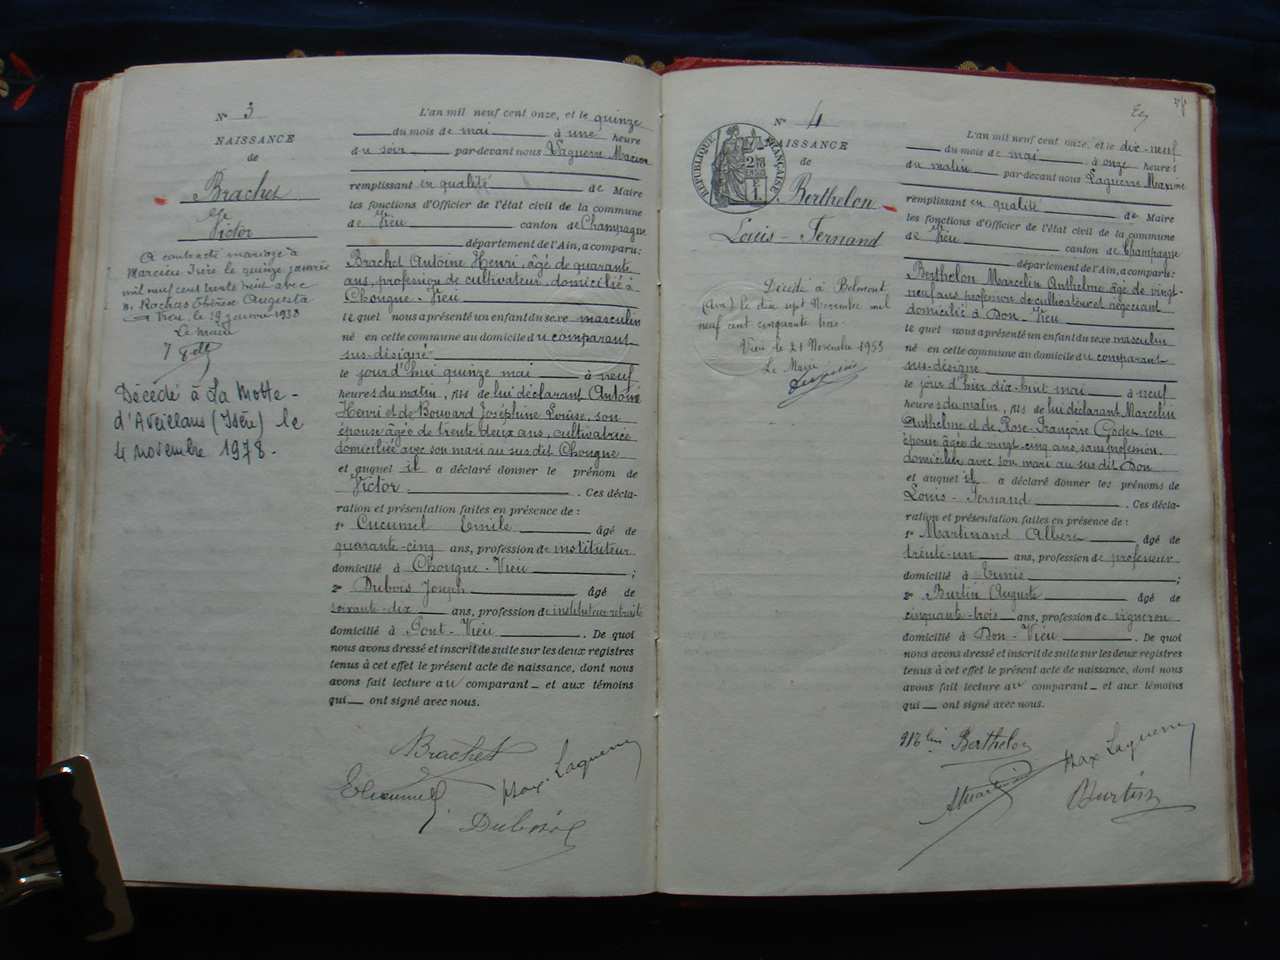 N° 3
NAISSANCE
de
Brachet
Victor
A contracté mariage à
Marcieu Isère le quinze janvier
mil neuf cent trente huit avec
Rachas Thérèse Augusta
Vieu, le 19 janvier 1938
Le maire
Décédé à La Motte-
d'Aveillans (Isère) le
4 novembre 1978.
L'an mil neuf cent onze, et le quinze
du mois de mai à une heure
du soir par-devant nous Laguerre Maxime
remplissant en qualité de Maire
les fonctions d'Officier de l'état civil de la commune
de Vieu canton de Champagne
département de l'Ain, a comparu:
Brachet Antoine Henri, âgé de quarante
ans, profession de cultivateur, domicilié à
Chongne-Vieu
le quel nous a présenté un enfant du sexe masculin
né en cette commune au domicile du comparant
sus-désigné
le jour d'hui quinze mai à neuf
heures du matin, fils de lui déclarant Antoine
Henri et de Bouvard Joséphine Louise, son
épouse âgée de trente deux ans, cultivatrice
domiciliée avec son mari au sus dit Chongne
et auquel il a déclaré donner le prénom de
Victor. Ces décla-
ration et présentation faites en présence de :
1° Cucumel Emile âgé de
quarante-cinq ans, profession de instituteur
domicilié à Chongne-Vieu ;
2° Dubois Joseph âgé de
soixante-dix ans, profession de instituteur retraité
domicilié à Pont-Vieu. De quoi
nous avons dressé et inscrit de suite sur les deux registres
tenus à cet effet le présent acte de naissance, dont nous
avons fait lecture au comparant et aux témoins
qui ont signé avec nous.
Brachet
ECucumel
Max. Laguerre
Dubois
N° 4
NAISSANCE
de
RÉPUBLIQUE FRANÇAISE
Berthelon
Louis-Fernand
Décédé à Belmont
(Ain) le dix sept Novembre mil
neuf cent cinquante trois.
Vieu le 21 Novembre 1953
Le Maire
L'an mil neuf cent onze, et le dix-neuf
du mois de mai à onze heures
du matin par-devant nous Laguerre Maxime
remplissant en qualité de Maire
les fonctions d'Officier de l'état civil de la commune
de Vieu canton de Champagne
département de l'Ain, a comparu:
Berthelon Marcelin Anthelme âgé de vingt-
neuf ans profession de cultivateur et négociant
domicilié à Don-Vieu
le quel nous a présenté un enfant du sexe masculin
né en cette commune au domicile du comparant
sus-désigné
le jour d'hier dix-huit mai à neuf
heures du matin, fils de lui déclarant Marcelin
Anthelme et de Rose-Françoise Godet son
épouse âgée de vingt-cinq ans sans profession
domiciliée avec son mari au sus dit Don
et auquel il a déclaré donner les prénoms de
Louis-Fernand. Ces décla-
ration et présentation faites en présence de :
1° Martinand Albert âgé de
trente-un ans, profession de professeur
domicilié à Tunis ;
2° Burtin Auguste âgé de
cinquante-trois ans, profession de vigneron
domicilié à Don-Vieu. De quoi
nous avons dressé et inscrit de suite sur les deux registres
tenus à cet effet le présent acte de naissance, dont nous
avons fait lecture au comparant et aux témoins
qui ont signé avec nous.
Berthelon
Max Laguerre
AMartinand
Burtin